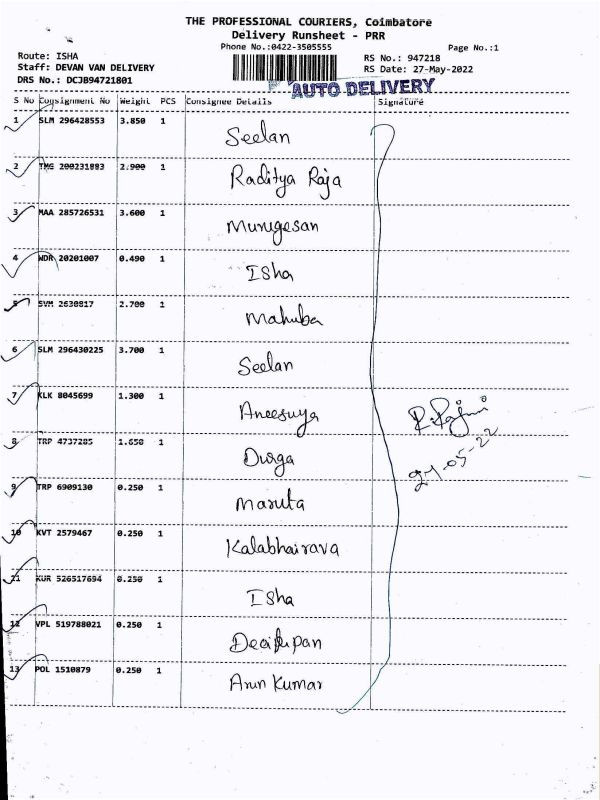 THE PROFESSIONAL COURIERS, Coimbatore
Delivery Runsheet - PRR
Phone No.:0422-3505555
Page No.:1
Route: ISHA
RS No.: 947218
Staff: DEVAN VAN DELIVERY
RS Date: 27-May-2022
DRS No.: DCJB94721801
AUTO DELIVERY
S No Consignment No Weight PCS Consignee Details Signature
1 SLM 296428553 3.850 1 Seelan
2 TMG 200231883 2.900 1 Raditya Raja
3 MAA 285726531 3.600 1 Murugesan
4 WDR 20201007 0.490 1 Isha
5 SVM 2630817 2.700 1 Mahuba
6 SLM 296430225 3.700 1 Seelan
7 KLK 8045699 1.300 1 Aneesuya
R. Rajini
27-05-22
8 TRP 4737285 1.650 1 Durga
9 TRP 6909130 0.250 1 Maruta
10 KVT 2579467 0.250 1 Kalabhairava
11 KUR 526517694 0.250 1 Isha
12 VPL 519788021 0.250 1
13 POL 1510879 0.250 1 Arun Kumar